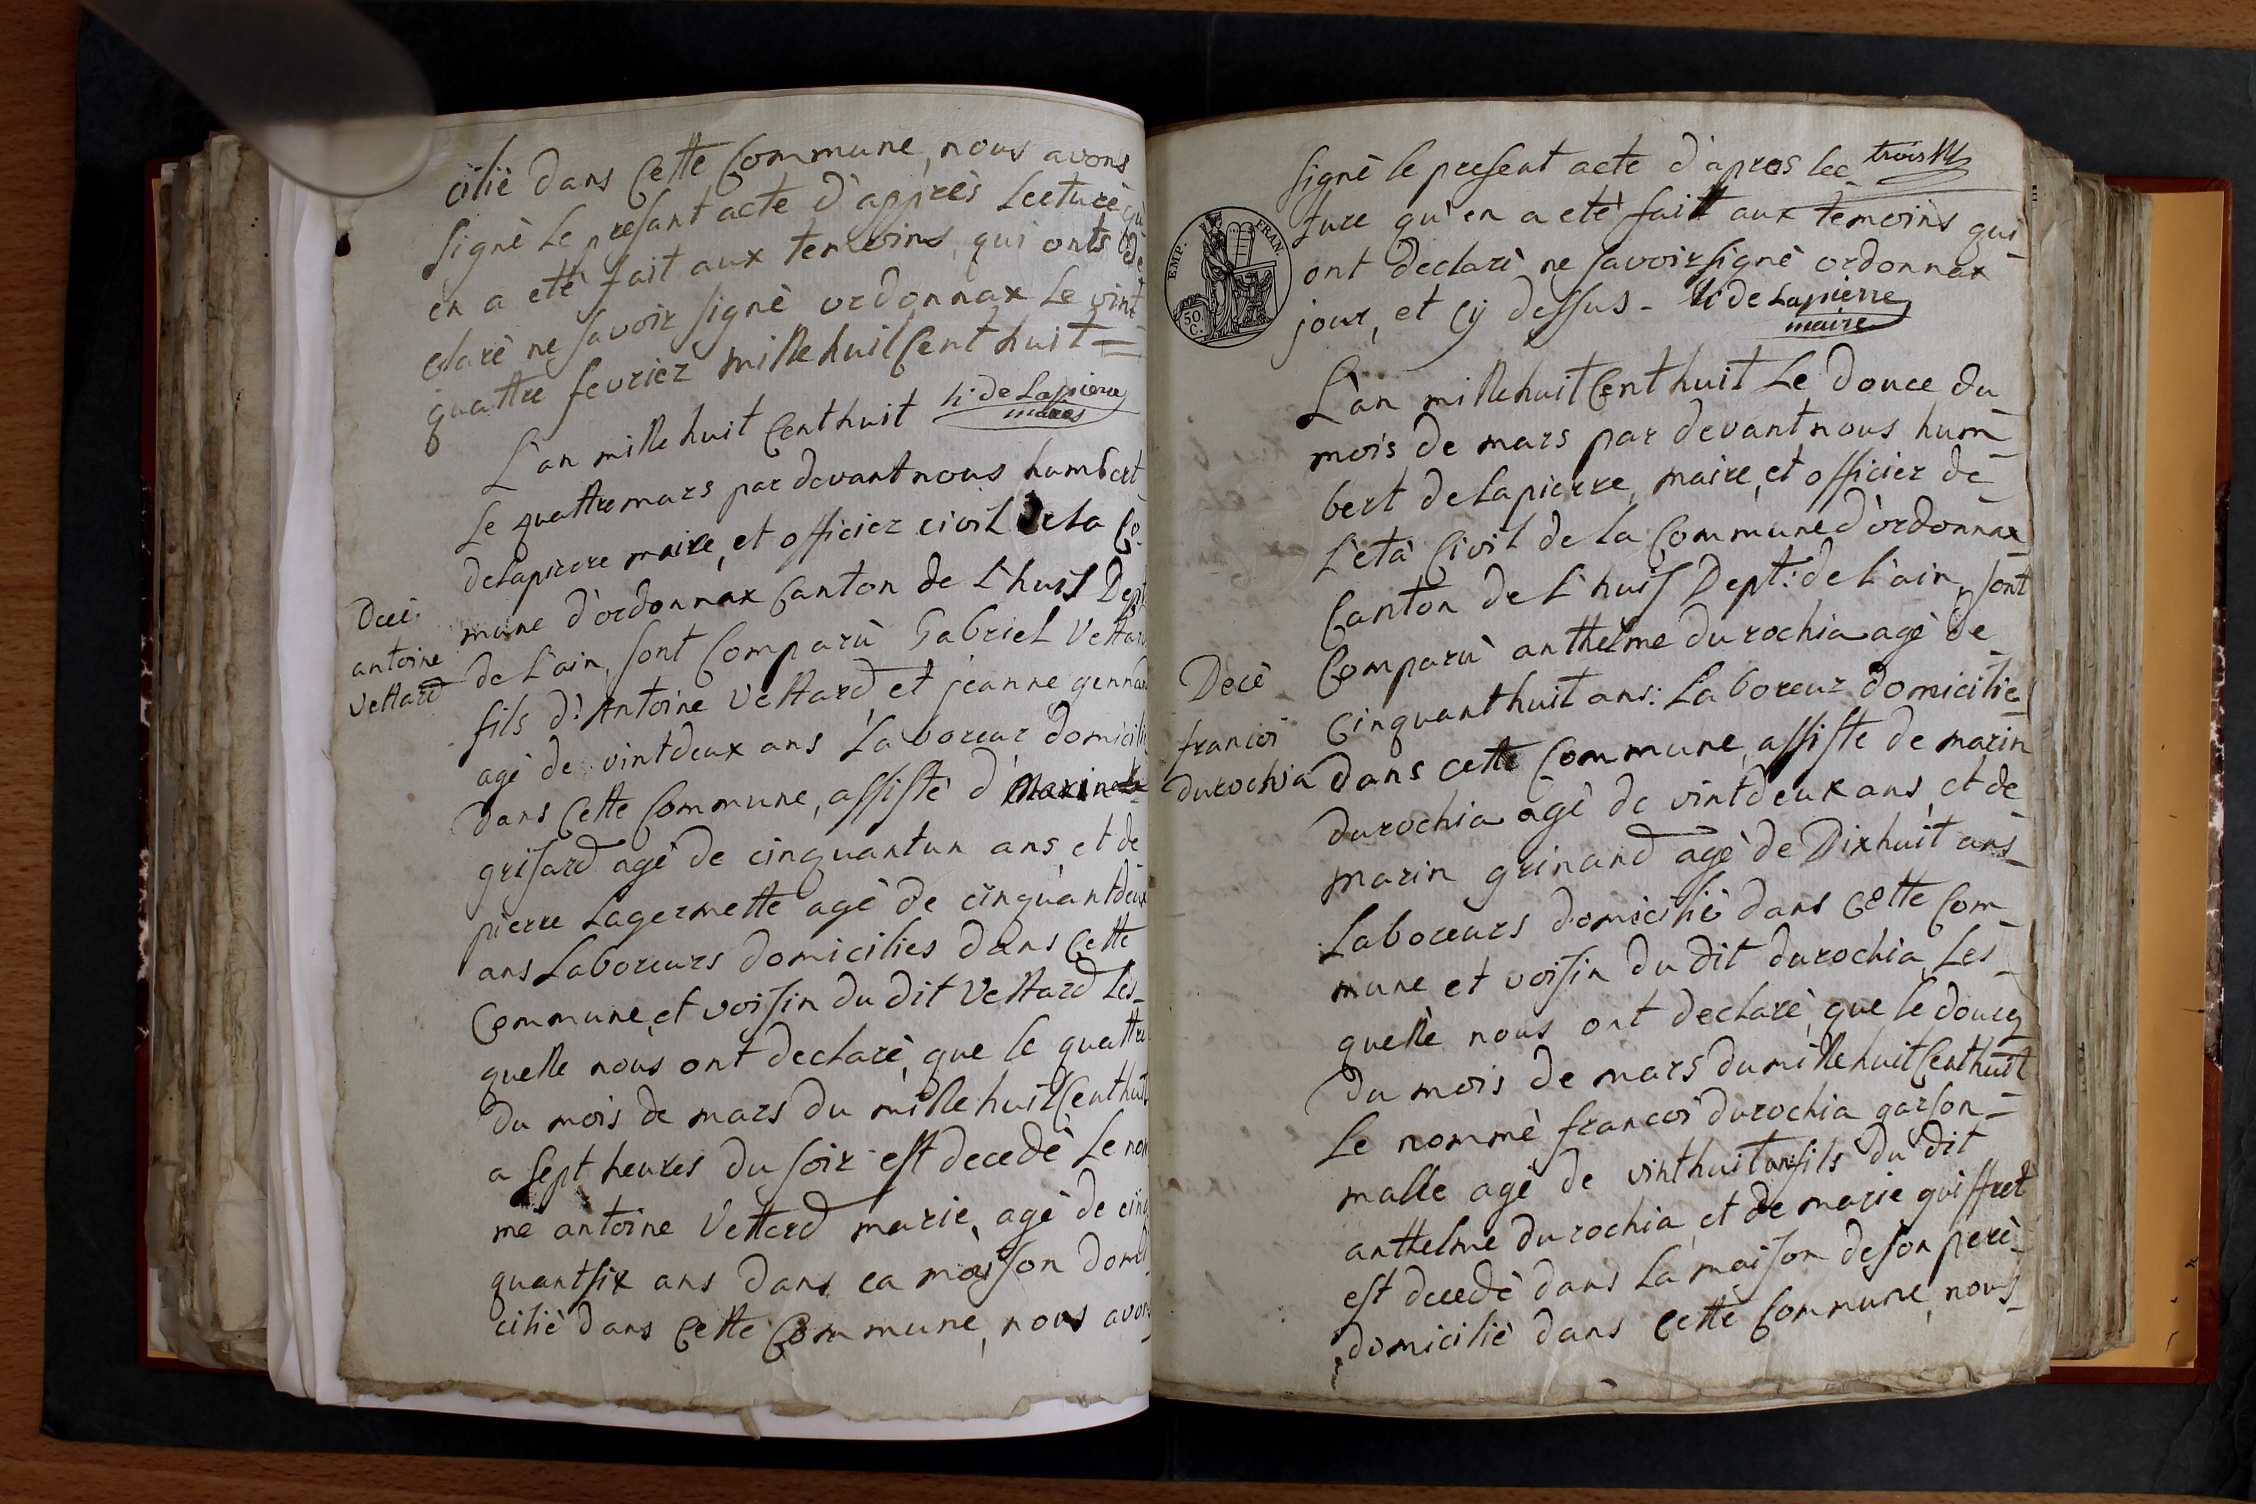 cilié dans Cette Commune, nous avons
signé Le presant acte d'apprès Lecture qu'
en a eté fait aux temoins, qui onts de
claré ne savoir signé ordonnax Le vint
quattre fevrier mille huit Cent huit =
h: de Lapierre
maire
L'an mille huit Cent huit
Le quattre mars par devant nous humbert
delapierre maire, et officier civil de la Co
mune d'ordonnax Canton de L'huis Dept
de L'ain, sont Comparù Gabriel Vettard
fils d'Antoine Vettard, et jeanne
agé de vintdeux ans Laboreur domicilié
Dans Cette Commune, assisté d' Marin
grisard agé de cinquantun ans, et de
pierre Lagermette agé de cinquantdeux
ans Laboreurs domiciliés dans Cette
Commune, et voisin du dit Vettard Les
quelle nous ont declaré, que le quattre
du mois de mars du mille huit Cent huit
a sept heures du soir est decedé Le nom
mé antoine Vettard marié, agé de cin
quantsix ans dans ca maison domi
cilié dans Cette Commune, nous avons
Decé
antoine
Vettard
signé le present acte d'apres lec
trois
ture qu'en a eté fait aux temoins qui
ont declaré ne savoir signé ordonnax
jour, et Cy dessus - h: de Lapierre
maire
EMP. FRAN.
50. C.
L'an mille huit Cent huit Le douce du
mois de mars par devant nous hum
bert delapierre, maire, et officier de
L'eta Civil de la Commune d'ordonnax
Canton de L'huis Dept: de L'ain, sont
Comparù anthelme durochia agé de
Cinquanthuit ans: Laboreur domicilié
dans cette Commune, assisté de marin
durochia agé de vintdeux ans, et de
marin grinand agé de Dixhuit ans
Laboreurs domicilié dans Cette Com
mune, et voisin du dit durochia, Les
quelle nous ont declaré, que le douce
du mois de mars du mille huit Cent huit
Le nommé francoi durochia garson
malle agé de vinthuit ans fils du dit
anthelme durochia, et de marie guiffret
est decedé dans La maison de son peré
domicilié dans Cette Commune, nous
Decé
francoi
durochia